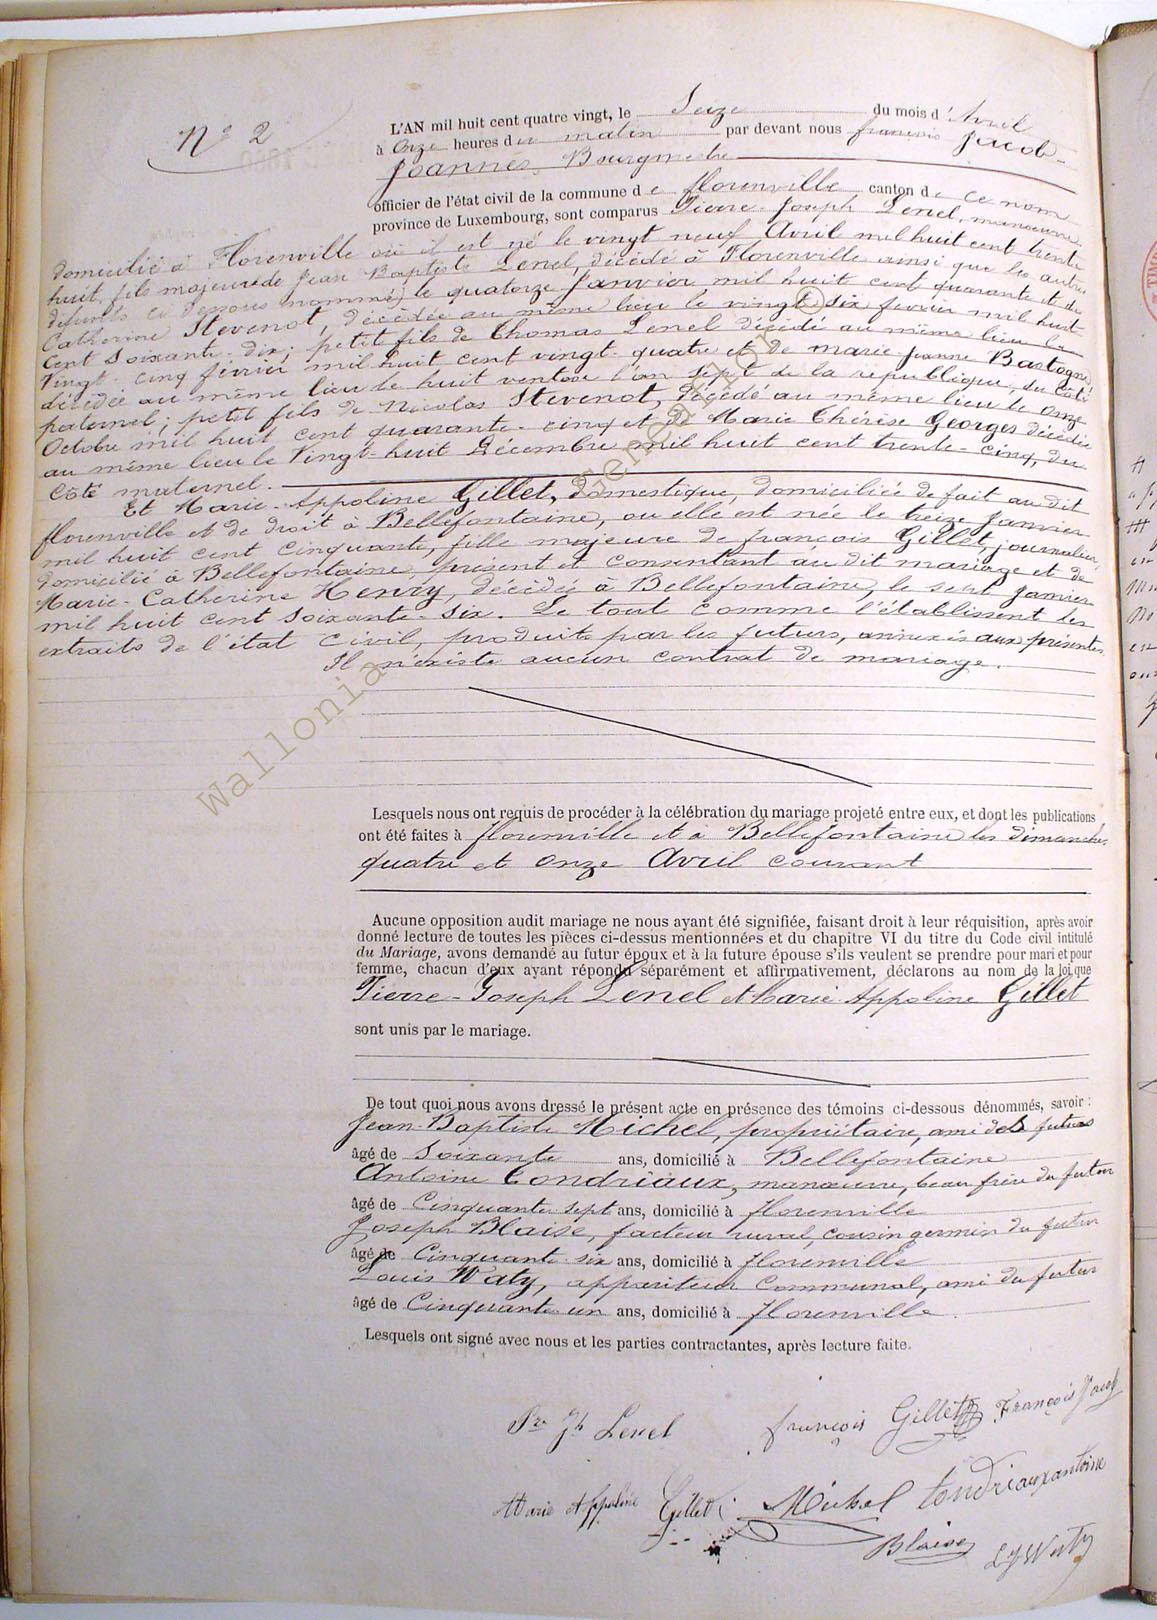 N° 2
L'AN mil huit cent quatre vingt, le Seize du mois d'Avril
à Onze heures du matin par devant nous françois Jacob
Joannes, Bourgmestre
officier de l'état civil de la commune de florenville canton de ce nom
province de Luxembourg, sont comparus Pierre-Joseph Lenel, manœuvre
domicilié à Florenville où il est né le vingt neuf Avril mil huit cent trente
huit, fils majeur de Jean Baptiste Lenel, décédé à Florenville ainsi que les autres
défunts ci dessous nommés, le quatorze Janvier mil huit cent quarante et de
Catherine Stevenot, décédée au même lieu le vingt six février mil huit
cent Soixante-dix; petit fils de Thomas Lenel décédé au même lieu le
Vingt-cinq février mil huit cent vingt-quatre et de marie-Jeanne Bastogne,
décédée au même lieu le huit ventose l'an sept de la république, du Côté
paternel; petit fils de Nicolas Stevenot, décédé au même lieu le onze
Octobre mil huit cent quarante-cinq et de Marie Thérèse Georges décédée
au même lieu le Vingt-huit Décembre mil huit cent trente-cinq, du
Côté maternel.
Et Marie-Appoline Gillet, domestique, domiciliée de fait au dit
florenville et de droit à Bellefontaine, ou elle est née le treize Janvier
mil huit cent cinquante, fille majeure de françois Gillet, journalier,
domicilié à Bellefontaine, présent et consentant au dit mariage et de
Marie-Catherine Henry, décédée à Bellefontaine, le sept janvier
mil huit cent soixante-six. Le tout comme l'établissent les
extraits de l'état civil, produits par les futurs, annexés aux présentes.
Il n'existe aucun contrat de mariage.
Lesquels nous ont requis de procéder à la célébration du mariage projeté entre eux, et dont les publications
ont été faites à florenville et à Bellefontaine les dimanches
quatre et onze Avril courant
Aucune opposition audit mariage ne nous ayant été signifiée, faisant droit à leur réquisition, après avoir
donné lecture de toutes les pièces ci-dessus mentionnées et du chapitre VI du titre du Code civil intitulé
du Mariage, avons demandé au futur époux et à la future épouse s'ils veulent se prendre pour mari et pour
femme, chacun d'eux ayant répondu séparément et affirmativement, déclarons au nom de la loi que
Pierre-Joseph Lenel et Marie-Appoline Gillet
sont unis par le mariage.
De tout quoi nous avons dressé le présent acte en présence des témoins ci-dessous dénommés, savoir :
Jean-Baptiste Michel, propriétaire, ami des futurs
âgé de Soixante ans, domicilié à Bellefontaine
Antoine Tondriaux, manœuvre, beau frère du futur
âgé de Cinquante sept ans, domicilié à florenville
Joseph Blaise, facteur rural, cousin germain du futur
âgé de Cinquante six ans, domicilié à florenville
Louis Waty, appariteur Communal, ami du futur
âgé de Cinquante un ans, domicilié à florenville.
Lesquels ont signé avec nous et les parties contractantes, après lecture faite.
Pre Jh Lenel françois Gillet François Jacob
Marie Appoline Gillet Michel tondriaux antoine
Blaise LJWaty
Wallonia Genealogy